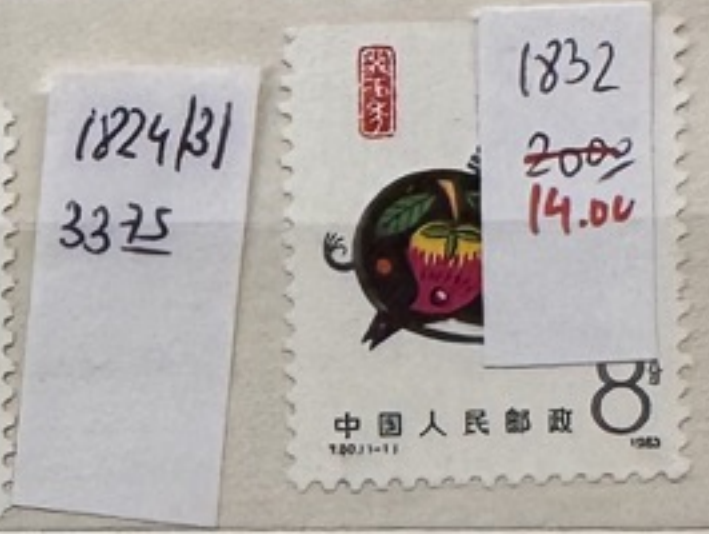 1824/31
33 75
癸亥年
1832
2000
14.00
中国人民邮政
8分
T.80.(1-1)
1983